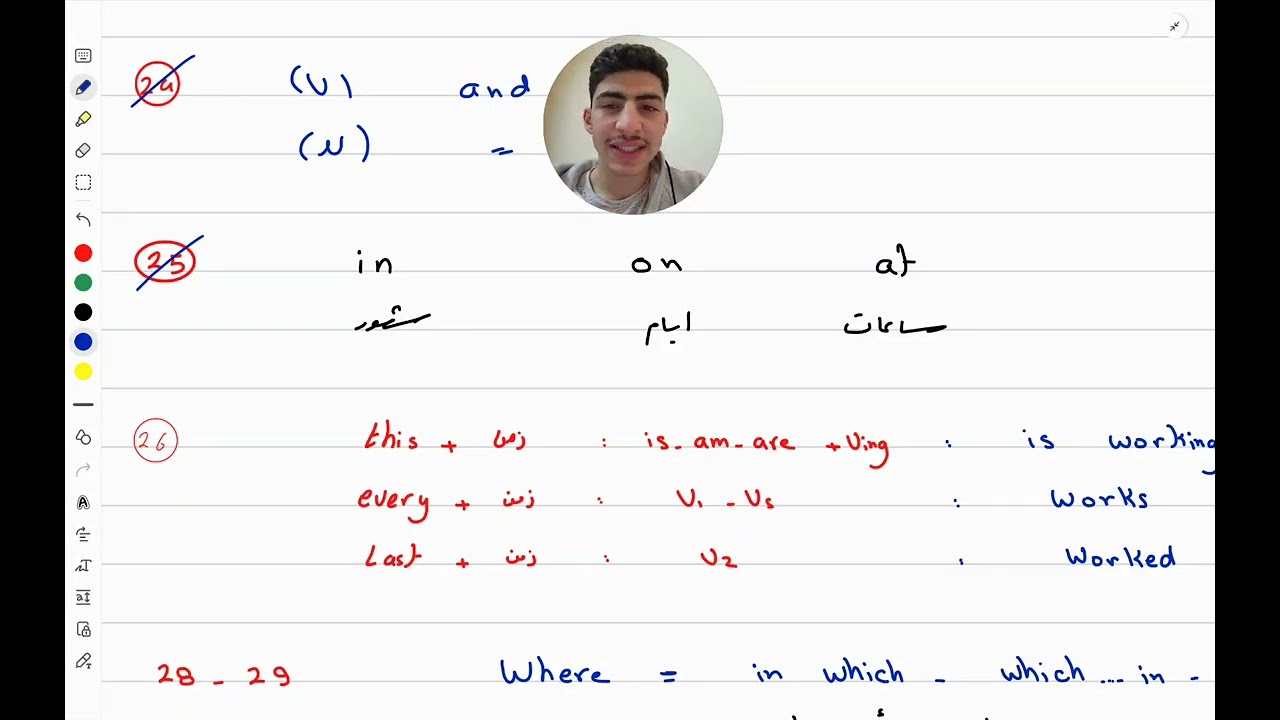 24 (V) and
(N) =
25 in on at
شهور ايام ساعات
26 this + زمن : is - am - are + Ving : is working
every + زمن : V1 - Vs : works
Last + زمن : V2 : worked
28 - 29 Where = in which - which ... in -